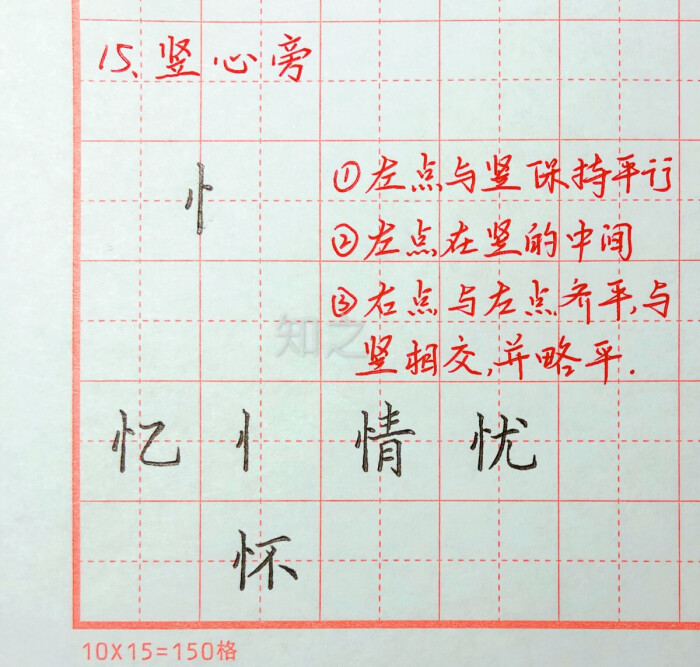 15、竖心旁
忄
①左点与竖保持平行
②左点在竖的中间
③右点与左点齐平,与
竖相交,并略平.
知之
忆 忄 情 忧
怀
10X15=150格